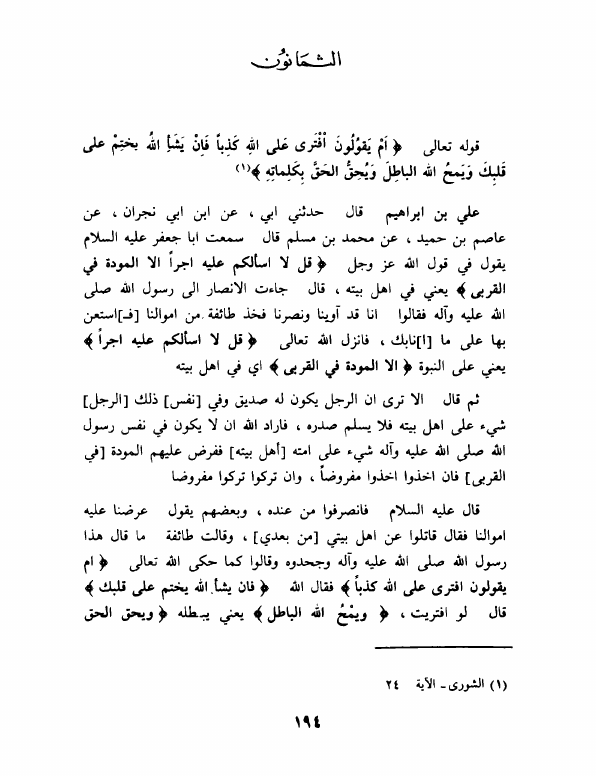 الثمانون
قوله تعالى ﴿ اَمْ يَقوُلُونَ أفْتَرى عَلى اللهِ كَذِباً فَاِنْ يَشَأِ اللهُ يختِمْ على
قلبِكَ وَيَمحُ الله الباطِلَ وَيُحِقُّ الحَقَّ بِكَلِماتِهِ ﴾(١)
علي بن ابراهيم قال حدثني ابي ، عن ابن ابي نجران ، عن
عاصم بن حميد ، عن محمد بن مسلم قال سمعت ابا جعفر عليه السلام
يقول في قول الله عز وجل ﴿ قل لا اسألكم عليه اجراً الا المودة في
القربى ﴾ يعني في اهل بيته ، قال جاءت الانصار الى رسول الله صلى
الله عليه وآله فقالوا انا قد آوينا ونصرنا فخذ طائفة من اموالنا [فـ]استعن
بها على ما [ا]نابك ، فانزل الله تعالى ﴿ قل لا اسألكم عليه اجراً ﴾
يعني على النبوة ﴿ الا المودة في القربى ﴾ اي في اهل بيته
ثم قال الا ترى ان الرجل يكون له صديق وفي [نفس] ذلك [الرجل]
شيء على اهل بيته فلا يسلم صدره ، فاراد الله ان لا يكون في نفس رسول
الله صلى الله عليه وآله شيء على امته [أهل بيته] ففرض عليهم المودة [في
القربى] فان اخذوا اخذوا مفروضاً ، وان تركوا تركوا مفروضا
قال عليه السلام فانصرفوا من عنده ، وبعضهم يقول عرضنا عليه
اموالنا فقال قاتلوا عن اهل بيتي [من بعدي] ، وقالت طائفة ما قال هذا
رسول الله صلى الله عليه وآله وجحدوه وقالوا كما حكى الله تعالى ﴿ ام
يقولون افترى على الله كذباً ﴾ فقال الله ﴿ فان يشأ الله يختم على قلبك ﴾
قال لو افتريت ، ﴿ ويمْحُ الله الباطل ﴾ يعني يبطله ﴿ ويحق الحق
(١) الشورى - الآية ٢٤
١٩٤